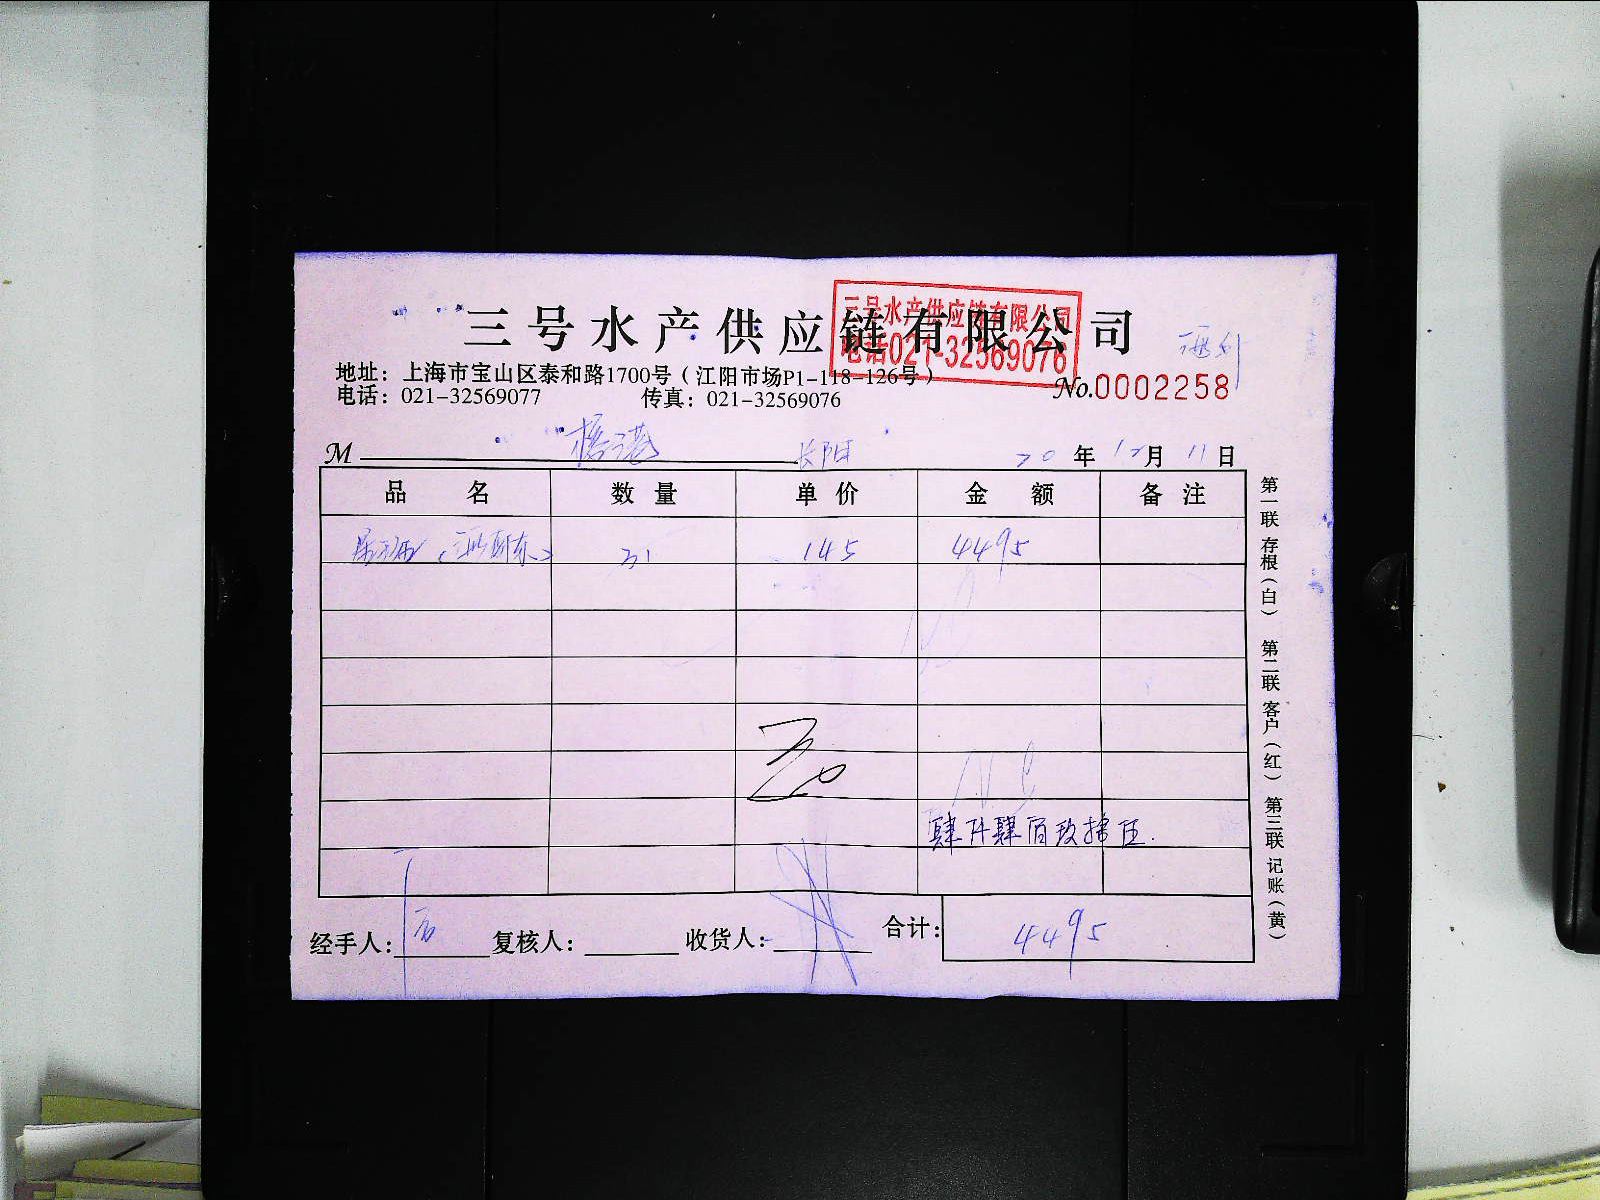 三号水产供应链有限公司
三号水产供应链有限公司
电话021-32569076
地址：上海市宝山区泰和路1700号（江阳市场P1-118-126号）
电话：021-32569077 传真：021-32569076
No.0002258
M 杨港 长阳 20年12月11日
品名 数量 单价 金额 备注
31 145 4495
肆仟肆佰玖拾伍.
经手人： 复核人： 收货人： 合计：4495
第一联 存根（白） 第二联 客户（红） 第三联 记账（黄）